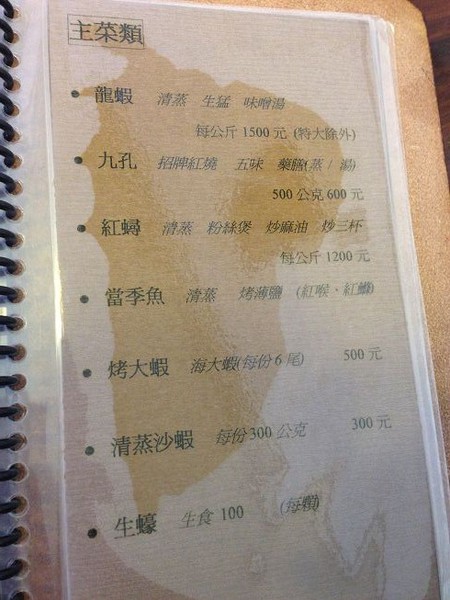 主菜類
龍蝦 清蒸 生猛 味噌湯
每公斤 1500 元 (特大除外)
九孔 招牌紅燒 五味 藥膳(蒸/湯)
500 公克 600 元
紅蟳 清蒸 粉絲煲 炒麻油 炒三杯
每公斤 1200 元
當季魚 清蒸 烤薄鹽 (紅喉、紅鰷)
烤大蝦 海大蝦(每份 6 尾) 500 元
清蒸沙蝦 每份 300 公克 300 元
生蠔 生食 100 (每顆)